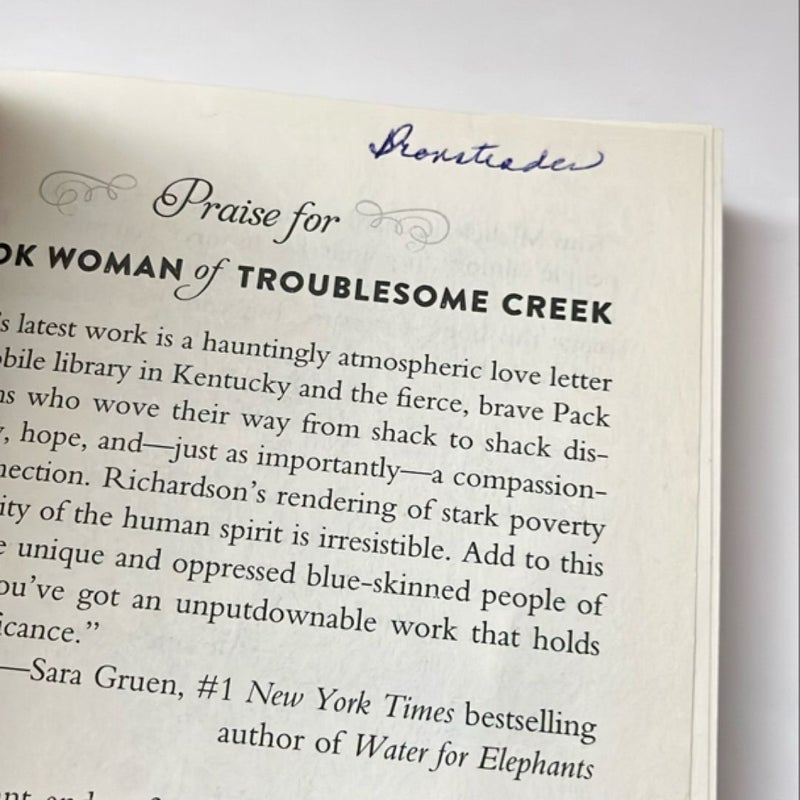 Bronstrader
Praise for
OK WOMAN of TROUBLESOME CREEK
's latest work is a hauntingly atmospheric love letter
obile library in Kentucky and the fierce, brave Pack
ns who wove their way from shack to shack dis-
y, hope, and—just as importantly—a compassion-
nection. Richardson's rendering of stark poverty
ity of the human spirit is irresistible. Add to this
e unique and oppressed blue-skinned people of
ou've got an unputdownable work that holds
icance."
—Sara Gruen, #1 New York Times bestselling
author of Water for Elephants